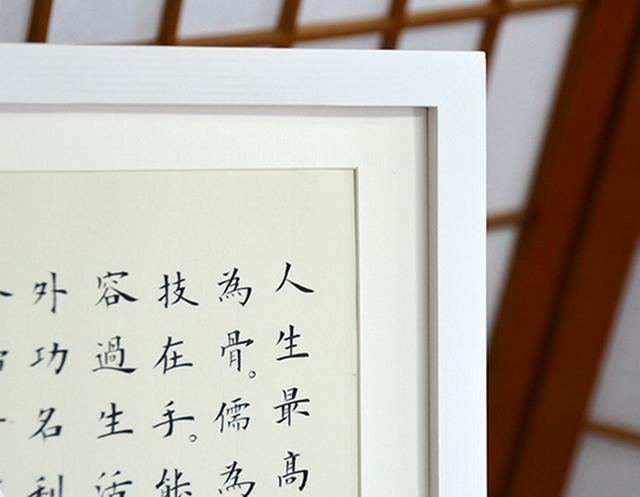 人生最高
為骨。儒為
技在手。能
容過生活
外功名利